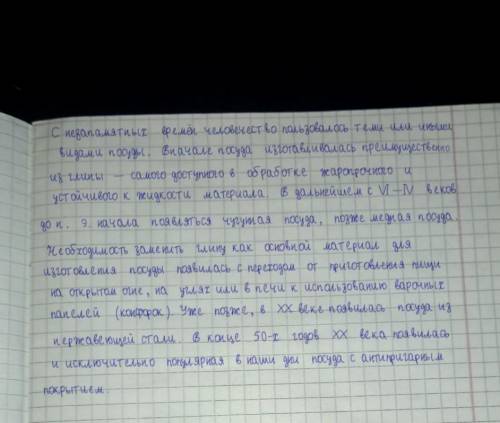 С незапамятных времён человечество пользовалось теми или иными
видами посуды. Вначале посуда изготавливалась преимущественно
из глины — самого доступного в обработке жаропрочного и
устойчивого к жидкости материала. В дальнейшем с VI–IV веков
до н. э. начала появляться чугунная посуда, позже медная посуда.
Необходимость заменить глину как основной материал для
изготовления посуды появилась с переходом от приготовления пищи
на открытом огне, на углях или в печи к использованию варочных
панелей (конфорок). Уже позже, в XX веке появилась посуда из
нержавеющей стали. В конце 50-х годов XX века появилась
и исключительно популярная в наши дни посуда с антипригарным
покрытием.